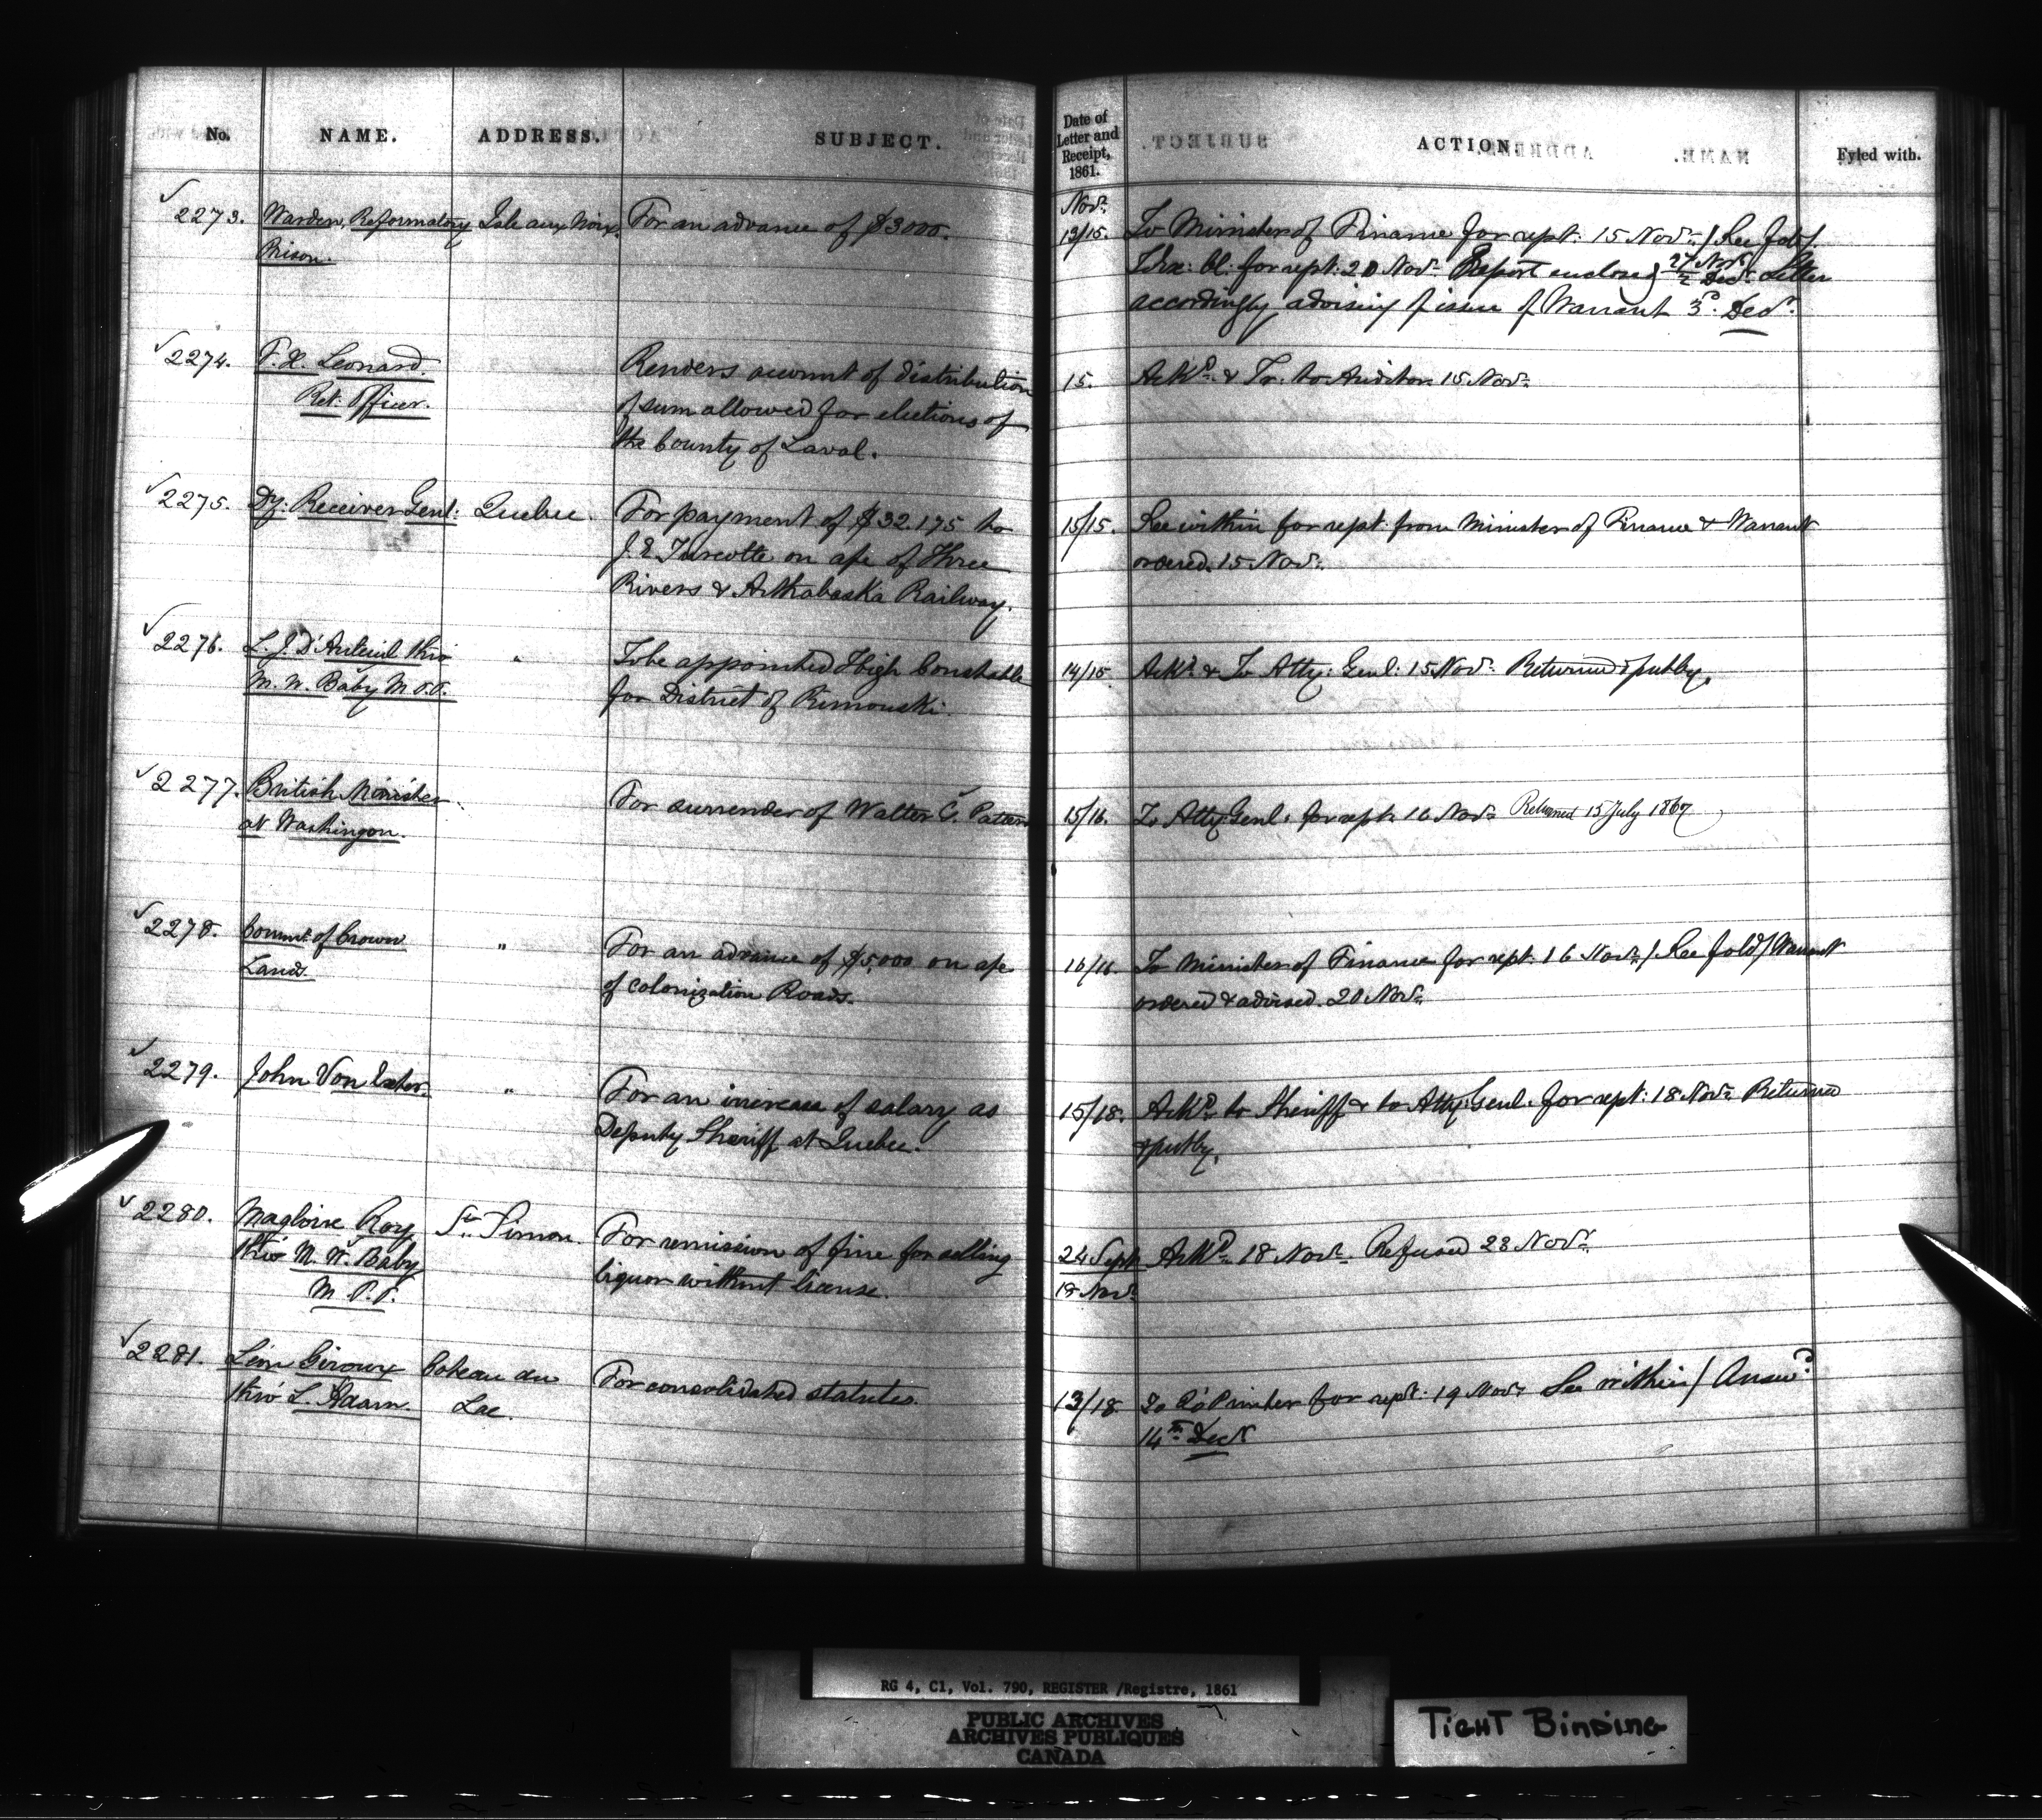 No. NAME. ADDRESS. SUBJECT.
2273. Warden, Reformatory Isle aux Noix. For an advance of $3000.
Prison.
2274. F. X. Leonard. Renders account of distribution
Ret: Officer. of sum allowed for elections of
the County of Laval.
2275. Dy: Receiver Genl: Quebec For payment of $32.175 to
J. E. Turcotte on a/c of Three
Rivers & Arthabaska Railway.
2276. L. J. D'Auteuil thro' " To be appointed High Constable
M. W. Baby M.P.P. for District of Rimouski.
2277. British Minister For surrender of Walter C.
at Washington.
2278. Commr. of Crown " For an advance of $5,000 on a/c
Lands. of Colonization Roads.
2279. John Von Exter. " For an increase of salary as
Deputy Sheriff at Quebec.
2280. Magloire Roy St. Simon. For remission of fine for selling
thro' M. W. Baby liquor without license.
M.P.P.
2281. Léon Giroux Coteau du For consolidated statutes.
thro' L. Adam. Lac.
Date of
Letter and
Receipt,
1861. ACTION. Fyled with.
Novr.
13/15. To Minister of Finance for rept: 15 Novr. / See fold /
Exe: Cl: for rept: 20 Novr. Report enclosed 27 Novr. 2 Decr. Letter
accordingly advising of issue of Warrant 3d. Decr.
15. Ackd. & Tr. to Auditor 15 Novr.
15/15. See within for rept: from Minister of Finance & Warrant
ordered. 15 Novr.
14/15 Ackd. & To Atty: Genl: 15 Novr. Returned & put by.
15/16. To Atty: Genl: for rept: 16 Novr. Returned 15 July 1867
16/16. To Minister of Finance for rept: 16 Novr. / See fold / Warrant
ordered & advised. 20 Novr.
15/18. Ackd. to Sheriff & to Atty: Genl: for rept: 18 Novr. Returned
& put by.
24 Sept Ackd. 18 Novr. Refused 23 Novr.
18 Novr.
13/18. To Q's Printer for rept: 19 Novr. See within / Answd.
14th Decr.
RG 4, C1, Vol. 790, REGISTER /Registre, 1861
PUBLIC ARCHIVES
ARCHIVES PUBLIQUES
CANADA
TIGHT BINDING